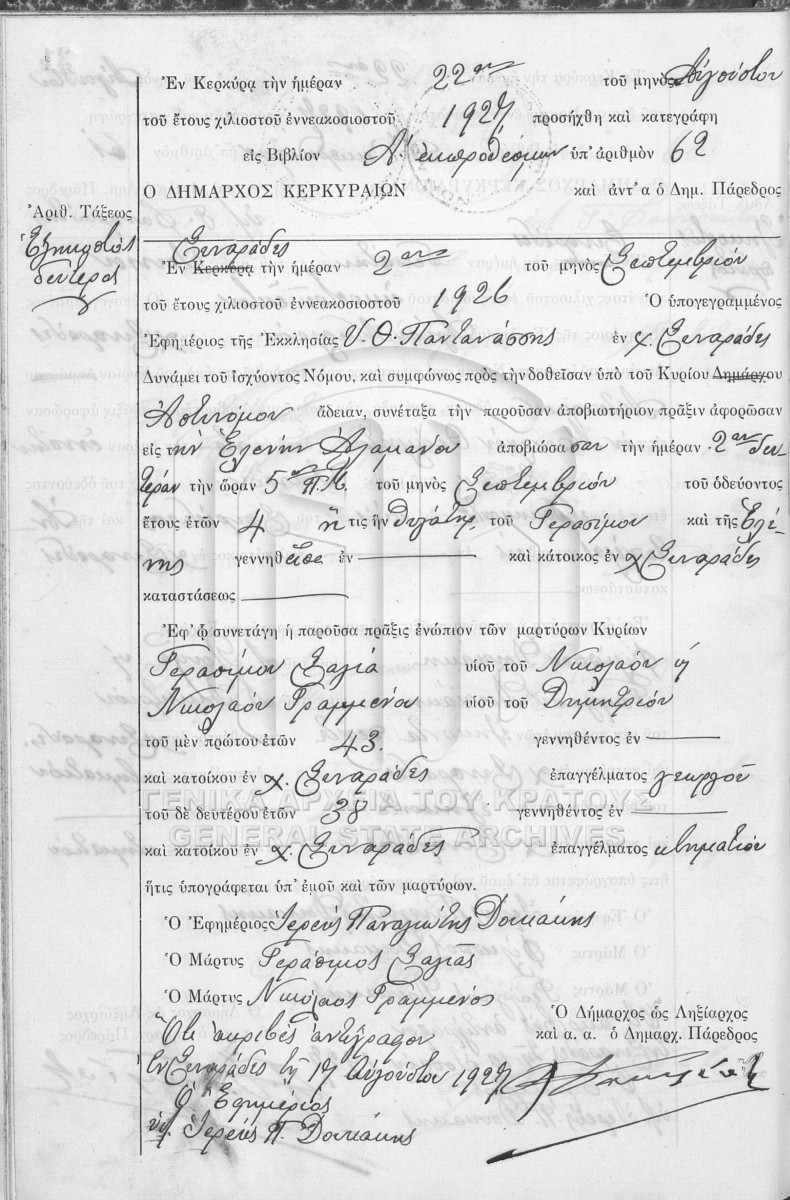 Ἐν Κερκύρᾳ τὴν ἡμέραν 22αν τοῦ μηνὸς Αὐγούστου
τοῦ ἔτους χιλιοστοῦ ἐννεακοσιοστοῦ 1927 προσήχθη καὶ κατεγράφη
εἰς Βιβλίον Α. ἐκπροθέσμων ὑπ' ἀριθμὸν 62
Ο ΔΗΜΑΡΧΟΣ ΚΕΡΚΥΡΑΙΩΝ καὶ ἀντ' α ὁ Δημ. Πάρεδρος
Ἀριθ. Τάξεως
Ἑξηκοστὸς
δεύτερος
Σιναράδες
Ἐν Κερκύρᾳ τὴν ἡμέραν 2αν τοῦ μηνὸς Σεπτεμβρίου
τοῦ ἔτους χιλιοστοῦ ἐννεακοσιοστοῦ 1926 Ὁ ὑπογεγραμμένος
Ἐφημέριος τῆς Ἐκκλησίας Υ.Θ. Παντανάσσης ἐν χ. Σιναράδες
Δυνάμει τοῦ ἰσχύοντος Νόμου, καὶ συμφώνως πρὸς τὴν δοθεῖσαν ὑπὸ τοῦ Κυρίου Δημάρχου
Ἀστυνόμου ἄδειαν, συνέταξα τὴν παροῦσαν ἀποβιωτήριον πρᾶξιν ἀφορῶσαν
εἰς τὴν Ἑλένην Ἀλαμάνου ἀποβιώσασαν τὴν ἡμέραν 2αν δευ
τέραν τὴν ὥραν 5ην π.μ. τοῦ μηνὸς Σεπτεμβρίου τοῦ ὁδεύοντος
ἔτους ἐτῶν 4 ἥτις ἦν θυγάτηρ τοῦ Γερασίμου καὶ τῆς Ἑλέ-
νης γεννηθεῖσα ἐν καὶ κάτοικος ἐν χ Σιναράδες
καταστάσεως
Ἐφ' ᾧ συνετάγη ἡ παροῦσα πρᾶξις ἐνώπιον τῶν μαρτύρων Κυρίων
Γερασίμου Σαλιᾶ υἱοῦ τοῦ Νικολάου ἢ
Νικολάου Γραμμένου υἱοῦ τοῦ Δημητρίου
τοῦ μὲν πρώτου ἐτῶν 43. γεννηθέντος ἐν
καὶ κατοίκου ἐν χ. Σιναράδες ἐπαγγέλματος γεωργοῦ
ΓΕΝΙΚΑ ΑΡΧΕΙΑ ΤΟΥ ΚΡΑΤΟΥΣ
τοῦ δὲ δευτέρου ἐτῶν 38 γεννηθέντος ἐν
GENERAL STATE ARCHIVES
καὶ κατοίκου ἐν χ. Σιναράδες ἐπαγγέλματος κτηματίου
ἥτις ὑπογράφεται ὑπ' ἐμοῦ καὶ τῶν μαρτύρων.
Ὁ Ἐφημέριος Ἱερεὺς Παναγιώτης Δουκάκης
Ὁ Μάρτυς Γεράσιμος Σαλιᾶς
Ὁ Μάρτυς Νικόλαος Γραμμένος
Ὁ Δήμαρχος ὡς Ληξίαρχος
καὶ α. α. ὁ Δημαρχ. Πάρεδρος
Ὅτι ἀκριβὲς ἀντίγραφον
Ἐν Σιναράδες τῇ 17 Αὐγούστου 1927
Ὁ Ἐφημέριος
Ἱερεὺς Π. Δουκάκης